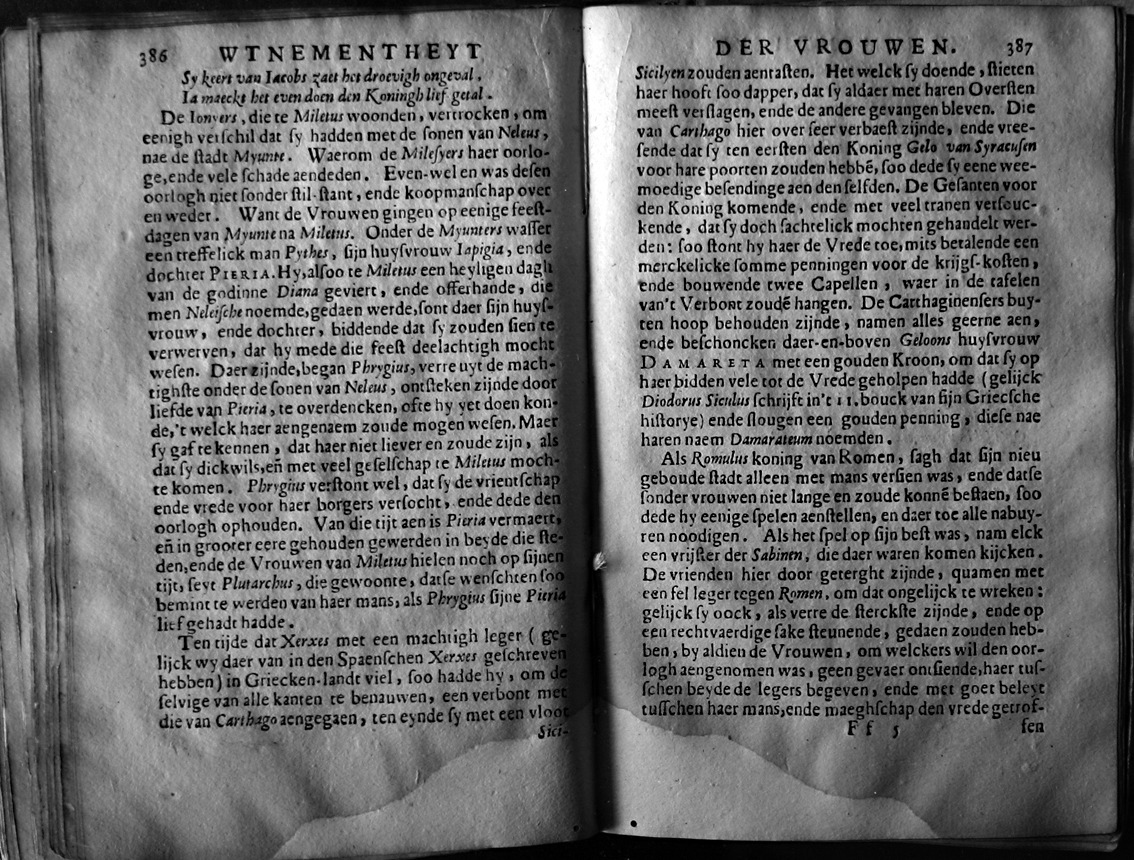 386 WTNEMENTHEYT
Sy keert van Iacobs zaet het droevigh ongeval,
Ia maeckt het even doen den Koningh lief getal.
De Ionyers, die te Miletus woonden, vertrocken, om
eenigh verſchil dat ſy hadden met de ſonen van Neleus,
nae de ſtadt Myunte. Waerom de Mileſyers haer oorlo-
ge, ende vele ſchade aendeden. Even-wel en was deſen
oorlogh niet ſonder ſtil-ſtant, ende koopmanſchap over
en weder. Want de Vrouwen gingen op eenige feeſt-
dagen van Myunte na Miletus. Onder de Myunters waſſer
een treffelick man Pythes, ſijn huyſvrouw Iapigia, ende
dochter PIERIA. Hy, alſoo te Miletus een heyligen dagh
van de godinne Diana geviert, ende offerhande, die
men Neleiſche noemde, gedaen werde, ſont daer ſijn huyſ-
vrouw, ende dochter, biddende dat ſy zouden ſien te
verwerven, dat hy mede die feeſt deelachtigh mocht
weſen. Daer zijnde, began Phrygius, verre uyt de mach-
tighſte onder de ſonen van Neleus, ontſteken zijnde door
liefde van Pieria, te overdencken, ofte hy yet doen kon-
de, 't welck haer aengenaem zoude mogen weſen. Maer
ſy gaf te kennen, dat haer niet liever en zoude zijn, als
dat ſy dickwils, eñ met veel geſelſchap te Miletus moch-
te komen. Phrygius verſtont wel, dat ſy de vrientſchap
ende vrede voor haer borgers verſocht, ende dede den
oorlogh ophouden. Van die tijt aen is Pieria vermaert,
eñ in grooter eere gehouden gewerden in beyde die ſte-
den, ende de Vrouwen van Miletus hielen noch op ſijnen
tijt, ſeyt Plutarchus, die gewoonte, datſe wenſchten ſoo
bemint te werden van haer mans, als Phrygius ſijne Pieria
lief gehadt hadde.
Ten tijde dat Xerxes met een machtigh leger (ge-
lijck wy daer van in den Spaenſchen Xerxes geſchreven
hebben) in Griecken-landt viel, ſoo hadde hy, om de
ſelvige van alle kanten te benauwen, een verbont met
die van Carthago aengegaen, ten eynde ſy met een vloot
Sici-
DER VROUWEN. 387
Sicilyen zouden aentaſten. Het welck ſy doende, ſtieten
haer hooft ſoo dapper, dat ſy aldaer met haren Overſten
meeſt verſlagen, ende de andere gevangen bleven. Die
van Carthago hier over ſeer verbaeſt zijnde, ende vree-
ſende dat ſy ten eerſten den Koning Gelo van Syracuſen
voor hare poorten zouden hebbẽ, ſoo dede ſy eene wee-
moedige beſendinge aen den ſelfden. De Geſanten voor
den Koning komende, ende met veel tranen verſouc-
kende, dat ſy doch ſachtelick mochten gehandelt wer-
den: ſoo ſtont hy haer de Vrede toe, mits betalende een
merckelicke ſomme penningen voor de krijgſ-koſten,
ende bouwende twee Capellen, waer in de tafelen
van't Verbont zoudẽ hangen. De Carthaginenſers buy-
ten hoop behouden zijnde, namen alles geerne aen,
ende beſchoncken daer-en-boven Geloons huyſvrouw
DAMARETA met een gouden Kroon, om dat ſy op
haer bidden vele tot de Vrede geholpen hadde (gelijck
Diodorus Siculus ſchrijft in't 11. bouck van ſijn Griecſche
hiſtorye) ende ſlougen een gouden penning, dieſe nae
haren naem Damarateum noemden.
Als Romulus koning van Romen, ſagh dat ſijn nieu
geboude ſtadt alleen met mans verſien was, ende datſe
ſonder vrouwen niet lange en zoude konnẽ beſtaen, ſoo
dede hy eenige ſpelen aenſtellen, en daer toe alle nabuy-
ren noodigen. Als het ſpel op ſijn beſt was, nam elck
een vrijſter der Sabinen, die daer waren komen kijcken.
De vrienden hier door geterght zijnde, quamen met
een fel leger tegen Romen, om dat ongelijck te wreken:
gelijck ſy oock, als verre de ſterckſte zijnde, ende op
een rechtvaerdige ſake ſteunende, gedaen zouden heb-
ben, by aldien de Vrouwen, om welckers wil den oor-
logh aengenomen was, geen gevaer ontſiende, haer tuſ-
ſchen beyde de legers begeven, ende met goet beleyt
tuſſchen haer mans, ende maeghſchap den vrede getrof-
Ff 5 fen